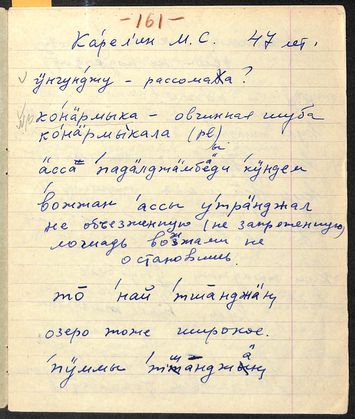 -161-
Карелин М.С. 47 лет.
ӱнгунджу - россомаха?
ко́нӓрмыка - овчинная шуба
ко́нӓрмы́кала (pl)
ӓсса падалджӓмбэди кӱндем
во́жжан ассы утра́нджал
не объезженную (не запряженную)
лошадь возжами не
остановишь.
то̄ 'най 'тшанджӓӊ
озеро тоже широкое.
'пӱммы